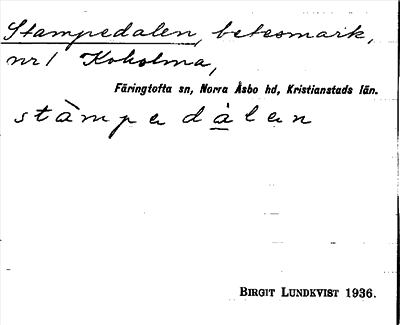 Stampedalen, betesmark,
nr 1 Koholma,
Färingtofta sn, Norra Åsbo hd, Kristianstads län.
stàmpedàlen
BIRGIT LUNDKVIST 1936.